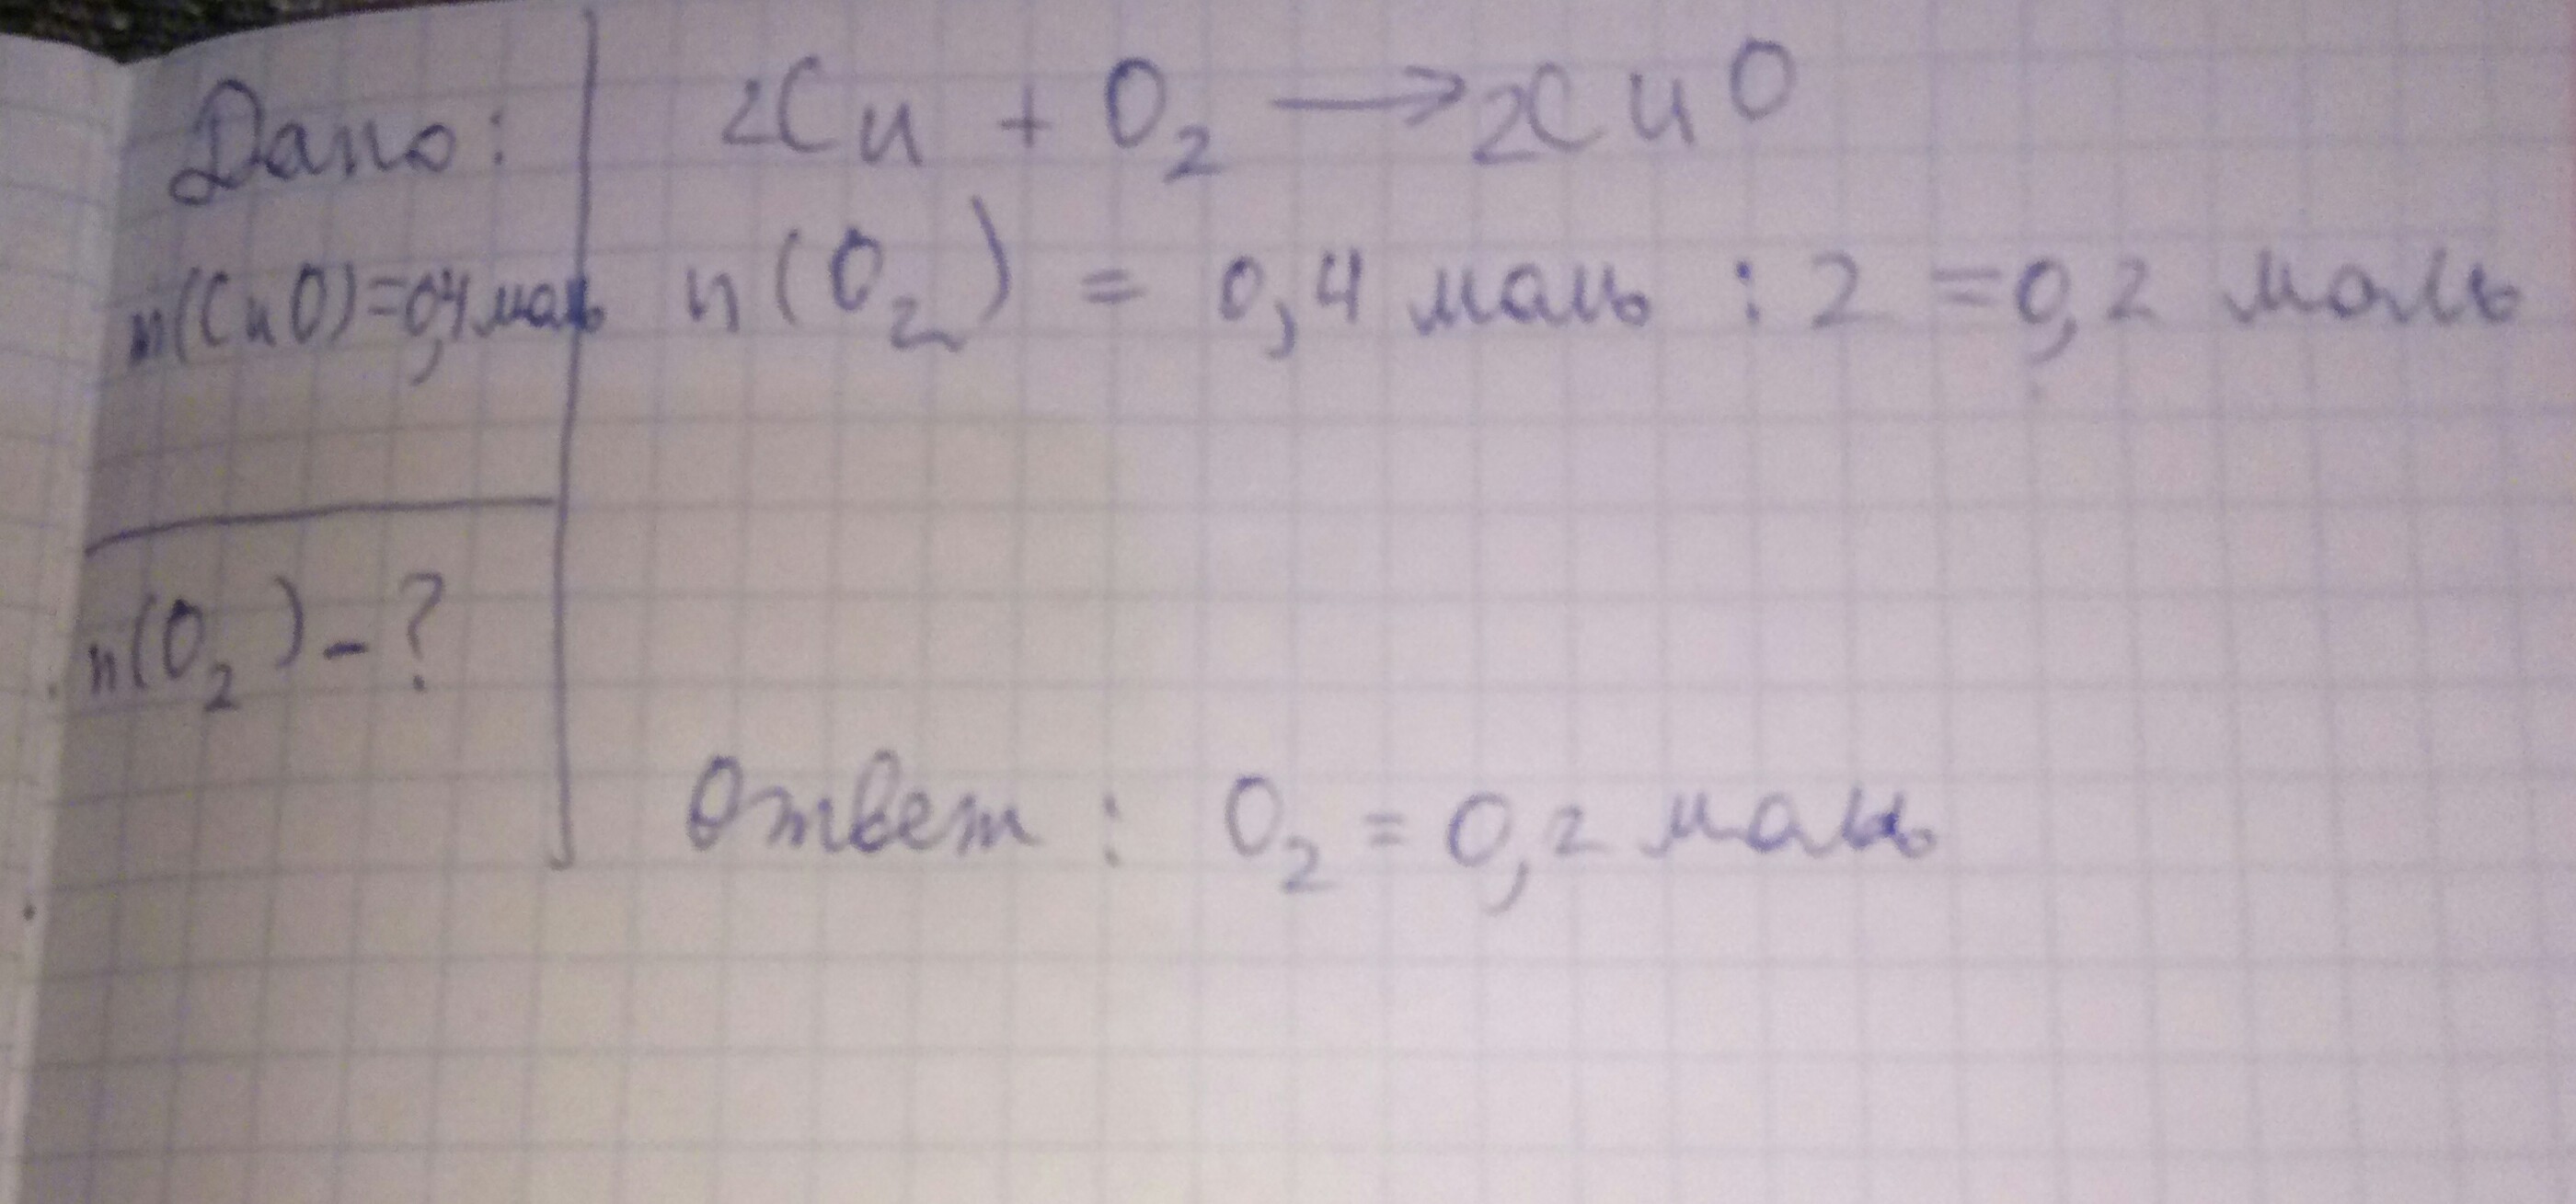 Дано:
n(CuO)=0,4 моль
n(O₂) - ?
2Cu + O₂ → 2CuO
n(O₂) = 0,4 моль : 2 = 0,2 моль
Ответ : O₂ = 0,2 моль